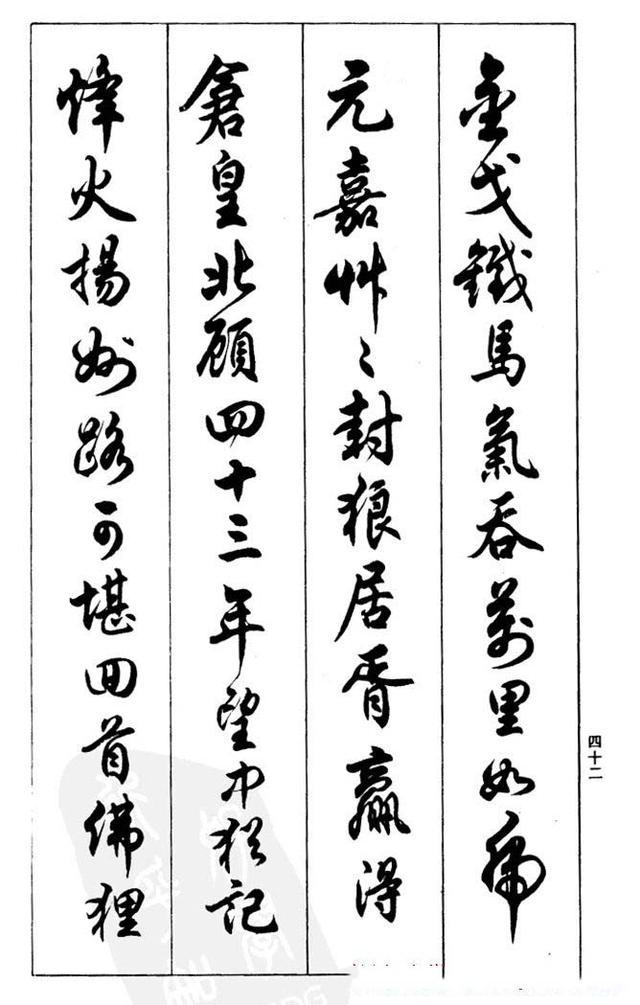 金戈鐵馬氣吞萬里如虎
元嘉艸〻封狼居胥贏得
倉皇北顧四十三年望中猶記
烽火揚州路可堪回首佛狸
四十二